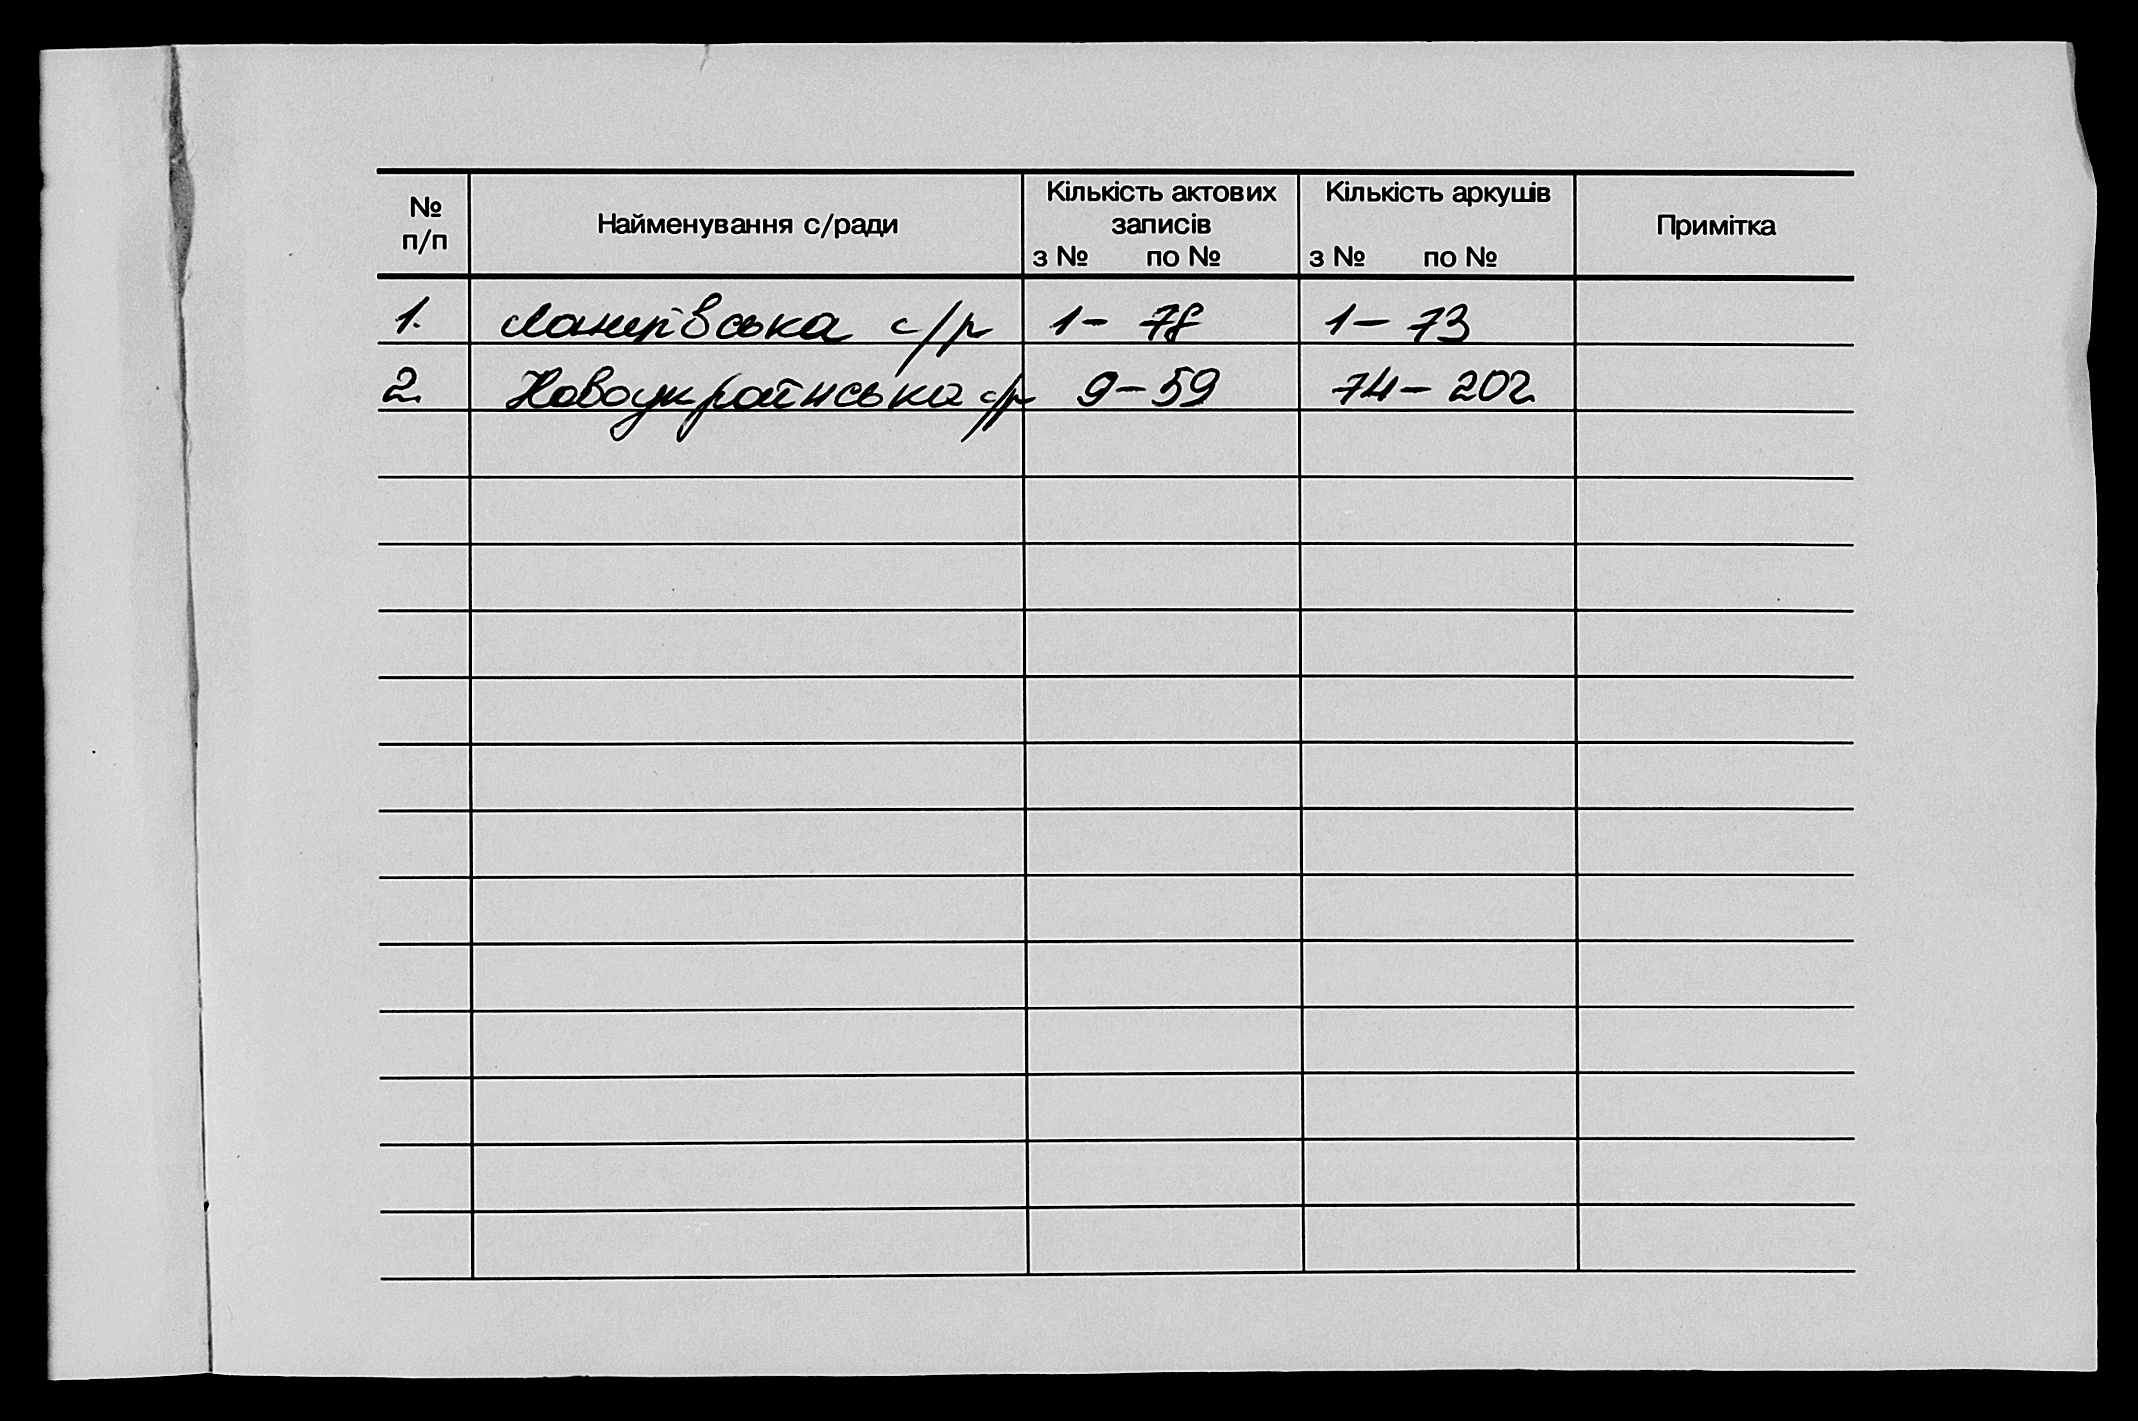 № п/п Найменування с/ради Кількість актових записів з № по № Кількість аркушів з № по № Примітка
1. с/р 1 - 78 1 - 73
2. Новоукраїнська с/р 9 - 59 74 - 202